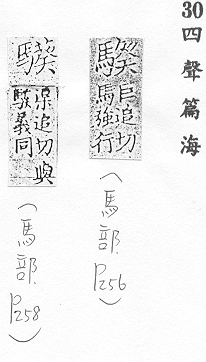 30 四聲篇海
騤
巨追切
馬強行
(馬部 P256)
渠追切與
騤義同
(馬部 P258)